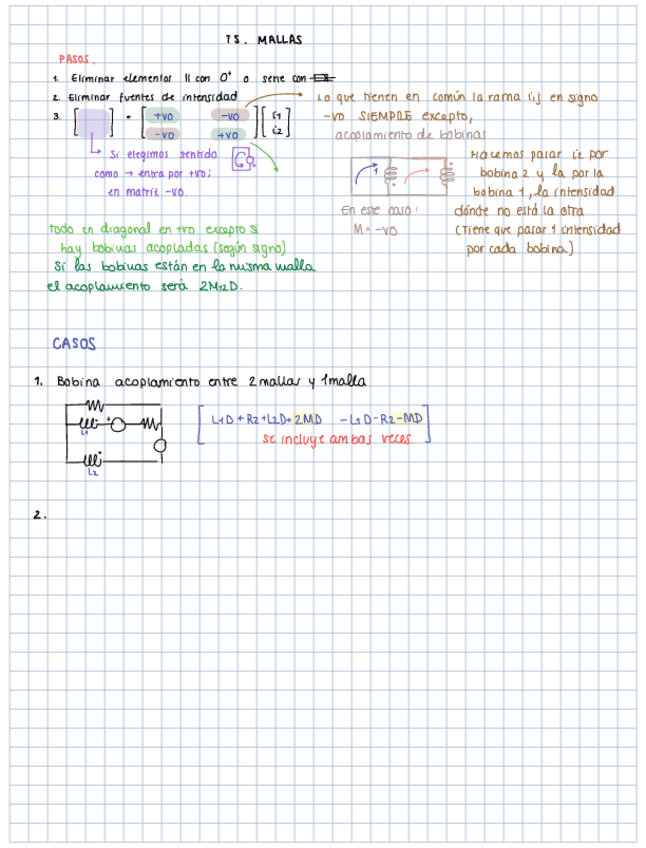 T5. MALLAS
PASOS.
1. Eliminar elementos || con 0⁺ o serie con
2. Eliminar fuentes de intensidad
3. [ ] = [ +vo -vo -vo +vo ] [ i1 i2 ]
Lo que tienen en común la rama i,j en signo
-vo SIEMPRE excepto,
acoplamiento de bobinas
Si elegimos sentido
como → entra por +vo;
en matriz -vo.
Hacemos pasar i2 por
bobina 2 y la por la
bobina 1, la intensidad
dónde no está la otra
(Tiene que pasar 1 intensidad
por cada bobina)
1
En este caso:
M = -vo
todo en diagonal en +vo excepto si
hay bobinas acopladas (según signo)
Si las bobinas están en la misma malla
el acoplamiento será 2M12D.
CASOS
1. Bobina acoplamiento entre 2 mallas y 1 malla
L1
L2
L1D + R2 + L2D + 2MD -L1D - R2 - MD
se incluye ambas veces
2.